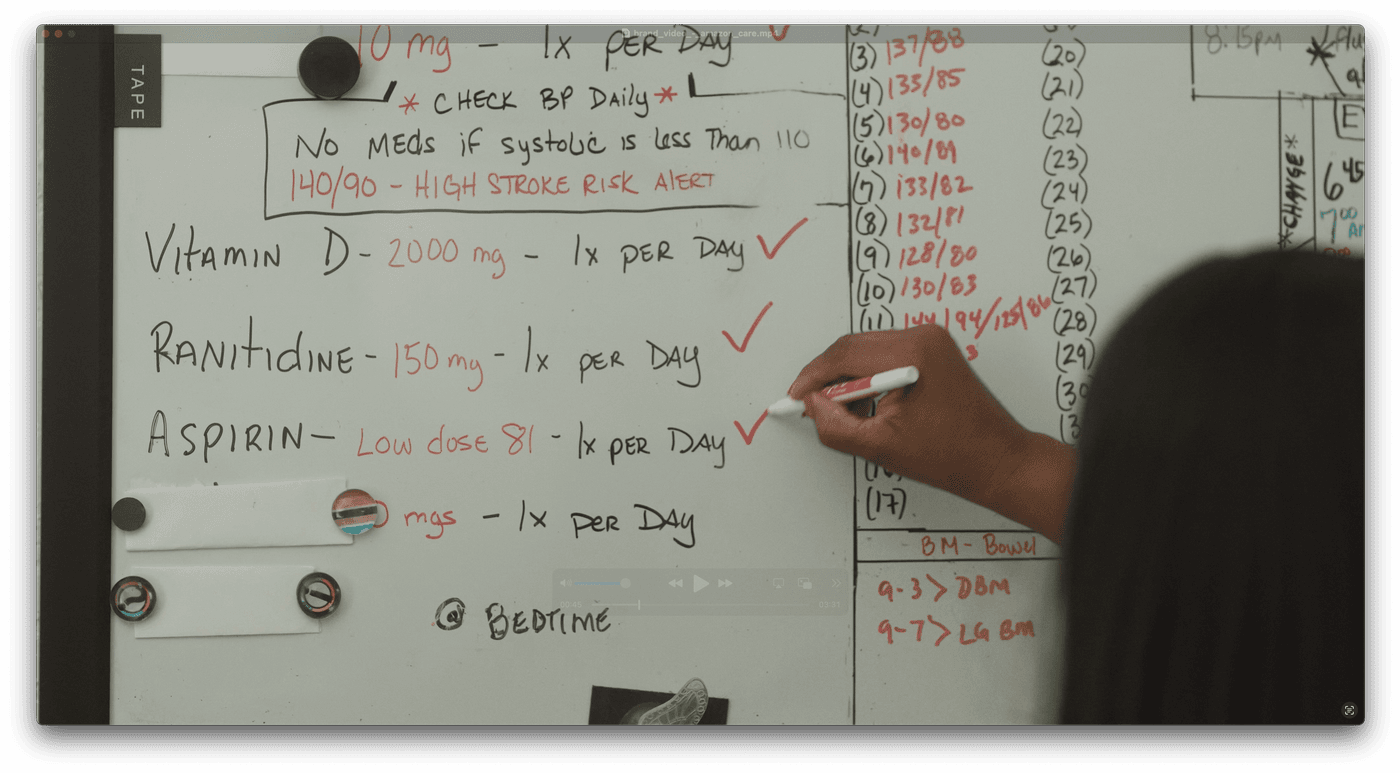 TAPE
10 mg - 1x PER DAY
* CHECK BP Daily *
No MEDs if systolic is less Than 110
140/90 - HIGH STROKE RISK ALERT
VITAMIN D - 2000 mg - 1x PER DAY
RANITIDINE - 150 mg - 1x PER DAY
ASPIRIN - Low dose 81 - 1x PER DAY
mgs - 1x PER DAY
@ BEDTIME
(3) 137/88
(4) 135/85
(5) 130/80
(6) 140/89
(7) 133/82
(8) 132/81
(9) 128/80
(10) 130/83
(11) 144/94/125/86
(17)
BM - Bowel
9-3 > DBM
9-7 > LG BM
(20)
(21)
(22)
(23)
(24)
(25)
(26)
(27)
(28)
(29)
8:15pm
*CHANGE*
6 45
7 00